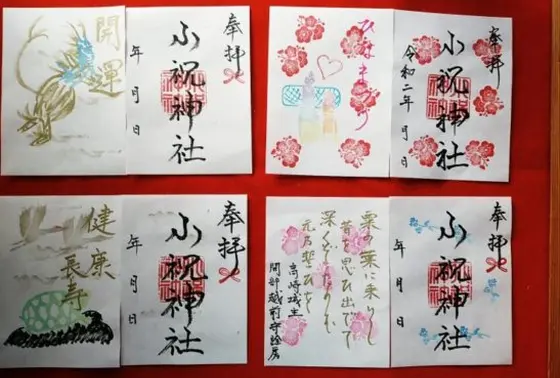 奉拝
小祝神社
年 月 日
開運
奉拝
小祝神社
令和二年 月 日
ひなまつり
奉拝
小祝神社
年 月 日
健康
長寿
奉拝
小祝神社
年 月 日
昔を思ひ出でて
高崎城主
間部越前守詮房